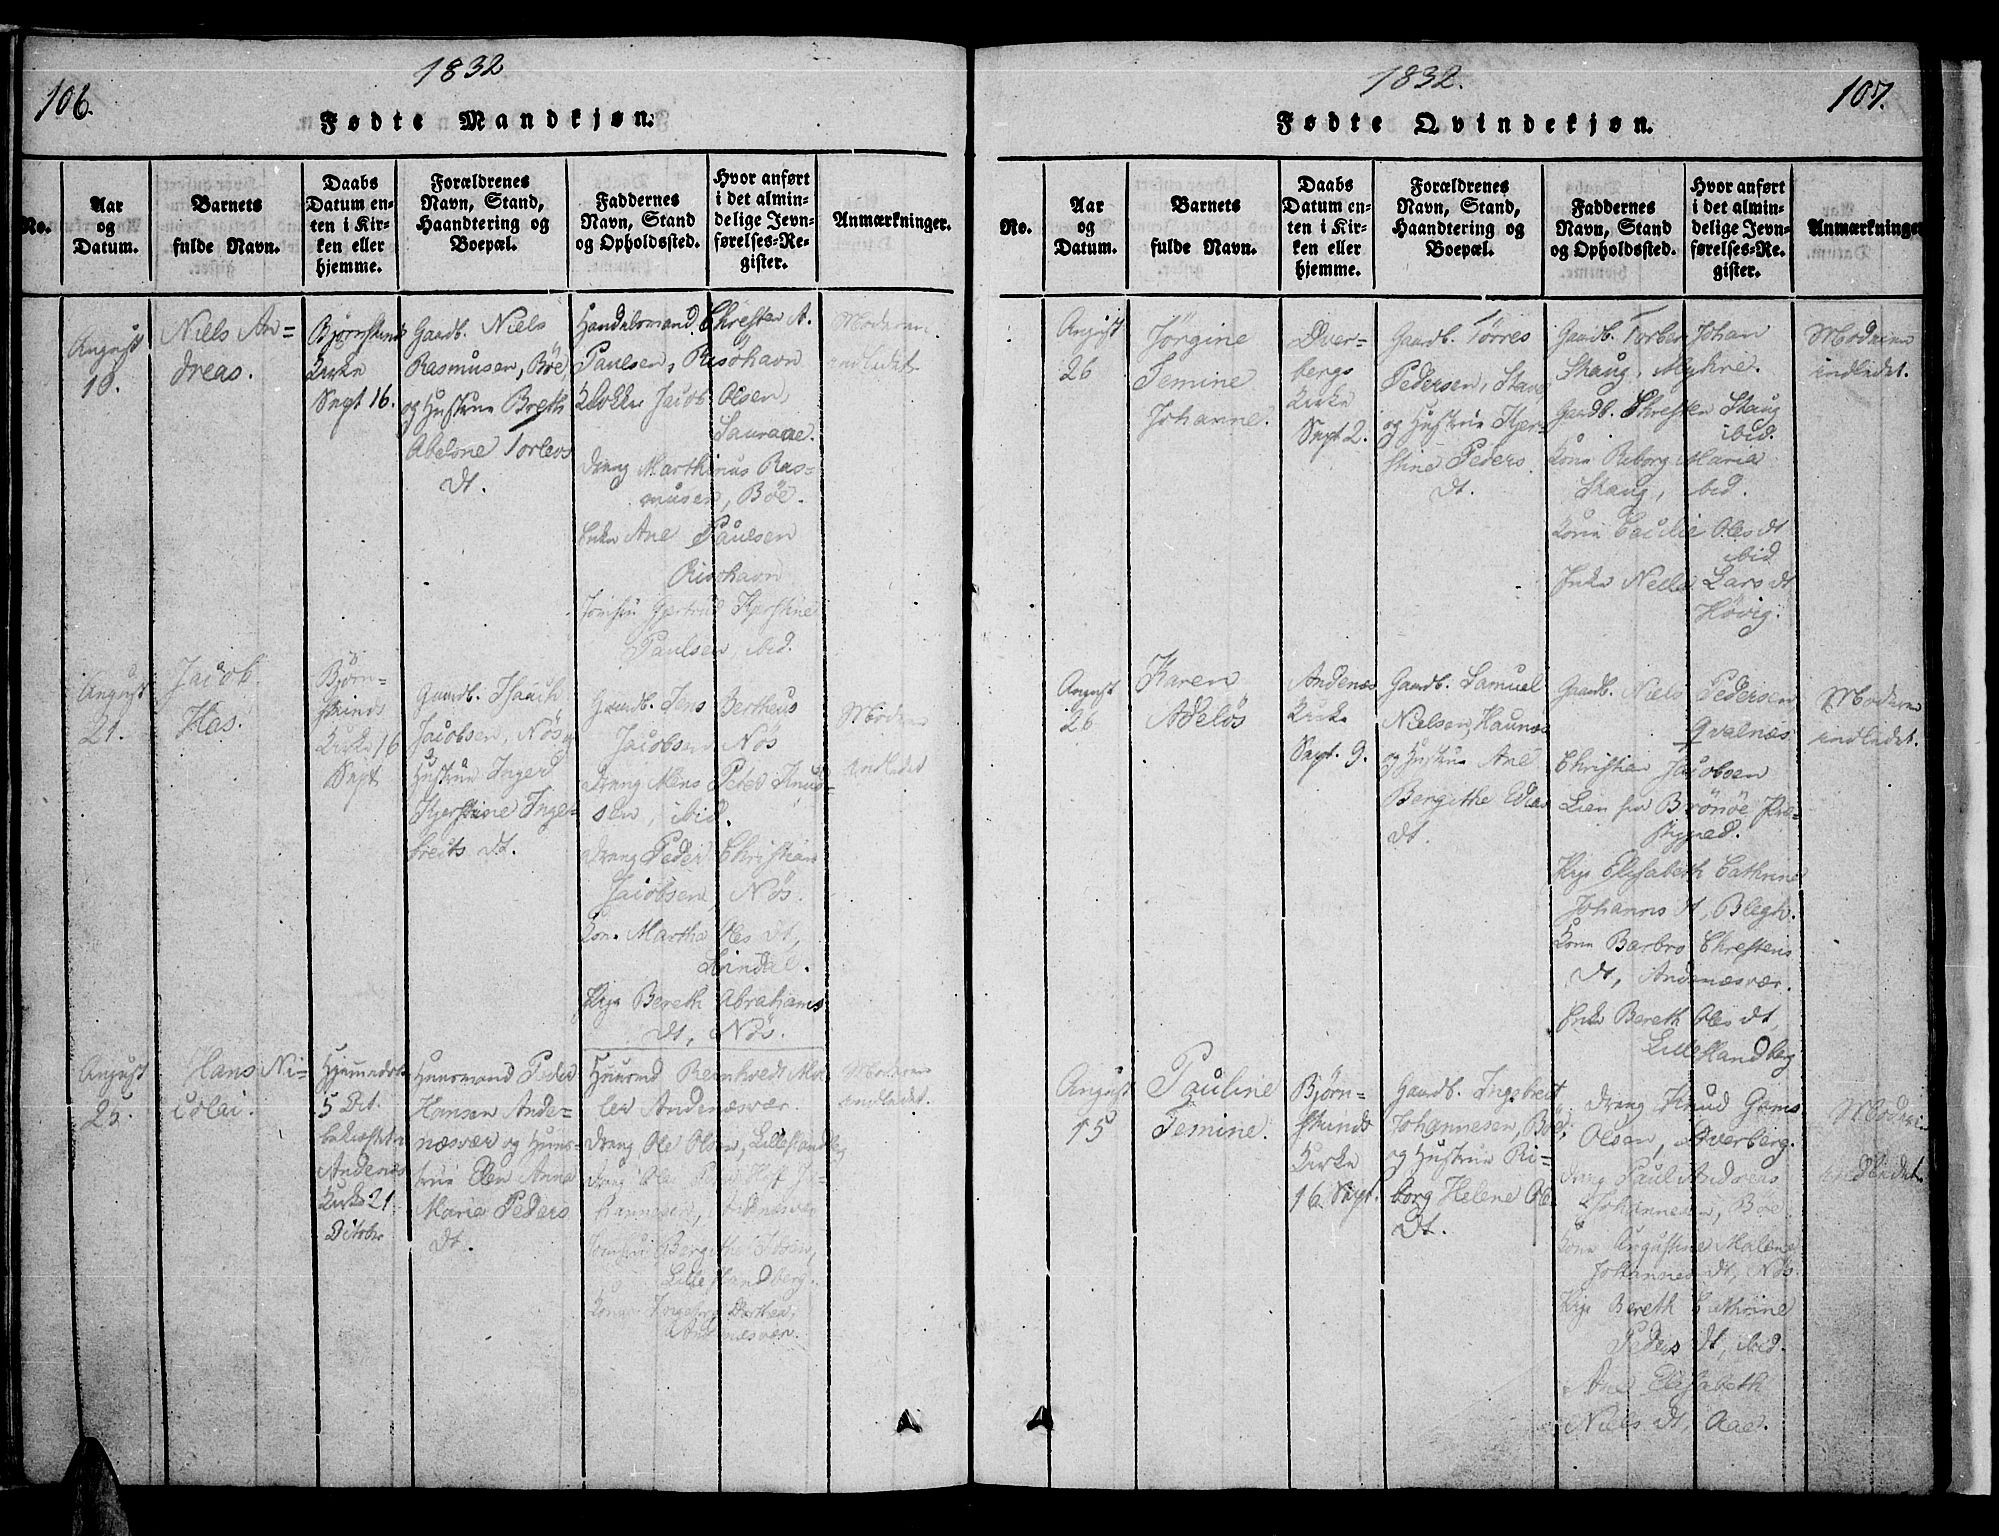 106.
1832
Fødte Mandkjøn.
No.
Aar
og
Datum.
Barnets
fulde Navn.
Daabs
Datum en-
ten i Kir-
ken eller
hjemme.
Forældrenes
Navn, Stand,
Haandtering og
Boepæl.
Faddernes
Navn, Stand
og Opholdssted.
Hvor anført
i det almin-
delige Jevn-
førelses-Re-
gister.
Anmærkninger.
August
10.
Niels An=
dreas.
Bjørnskinds
Kirke
Sept 16.
Gaardb. Niels
Rasmusen, Böe
og Hustrue Breth
Abelone Torlevs
dt.
Handelsmand Chresten A.
Paulsen, Risöhavn
Klokker Jacob Olsen,
Sauraae.
dreng Marthinus Ras=
musen, Böe.
Enke Ane Paulsen
Risöhavn
Jomfru Gjertrud Kjerstine
Paulsen, ibid.
Moderen
indledet
August
21.
Jacob
Has.
Björn=
skinds
Kirke 16
Sept
Gaardb. Isach
Jacobsen, Nös og
Hustrue Inger
Kjerstine Inge=
breits dt.
Gaardb. Jens Bertheus
Jacobsen Nös
dreng Mons Peter Knud=
sen, ibid.
dreng Peder Christian
Jacobsen, Nös.
Kone Martha Oles dt,
Pige Bereth Abrahams
dt, Nös.
Moderen
indledet
August
25.
Hans Ni=
colai.
Hjemmedöbt
5 Oct.
bekræftet i
Andenæs
Kirke 21
October
Huusmand Peder
Hansen Ande=
næsvær og Huus=
true Elen Anna
Maria Peders
dt.
Huusmd Bernhoedt Mol
ler Andenæsvær.
dreng Ole Olsen, Lille Skandberg
dreng Ole Peter Hof Jo=
hannesen, Andenæsvær
Jomfru Bergithe Ibsen,
Lille Skandberg.
Andenæsvær.
Moderen
indledet.
1832.
107.
Fødte Qvindekjøn.
No.
Aar
og
Datum.
Barnets
fulde Navn.
Daabs
Datum en-
ten i Kir-
ken eller
hjemme.
Forældrenes
Navn, Stand,
Haandtering og
Boepæl.
Faddernes
Navn, Stand
og Opholdssted.
Hvor anført
i det almin-
delige Jevn-
førelses-Re-
gister.
Anmærkninger
August
26
Jörgine
Jemine
Johanne.
Over=
bergs
Kirke
Sept 2.
Gaardb. Törres
Pedersen, Stave
og Hustrue Kjer=
stine Peders
dt.
Gaardb. Torber Johan
Skaug, Myhre.
Gaardb. Chresten Skaug
ibid.
Kone Riborg Maria
Skaug, ibid.
Kone Cecilie Oles dt
ibid
Enke Niella Lars dt
Hövig.
Moderen
indledet.
August
26
Karen
Adelös
Andenæs
Kirke
Sept. 9.
Gaardb. Samuel
Nielsen, Haunæs
og Hustrue Ane
Bergithe Elias
dt.
Gaardb. Niels Pedersen
Qvalnæs
Christian Jacobsen
Lien fra Brönöe Præ=
stegjed.
Pige Elisabeth Cathrine
Johanns dt, Blegh.
Kone Barbro Chrestens
dt, Andenæsvær.
Enke Bereth Oles dt,
Lille Skandberg
Moderen
indledet.
August
15
Pauline
Jemine.
Bjørn=
skinds
Kirke
16 Sept.
Gaardb. Ingebret
Johannesen, Böe,
og Hustrue Ri=
borg Helene Ols
dt.
dreng Knud Gams
Olsen, Averberg.
dreng Paul Andreas
Johannesen, Böe
Kone Augustine Malene
Johannes dt, Nös.
Pige Bereth Cathrine
Peders dt, ibid.
Ane Elisabeth
Niels dt, Aae.
Moderen
indledet.